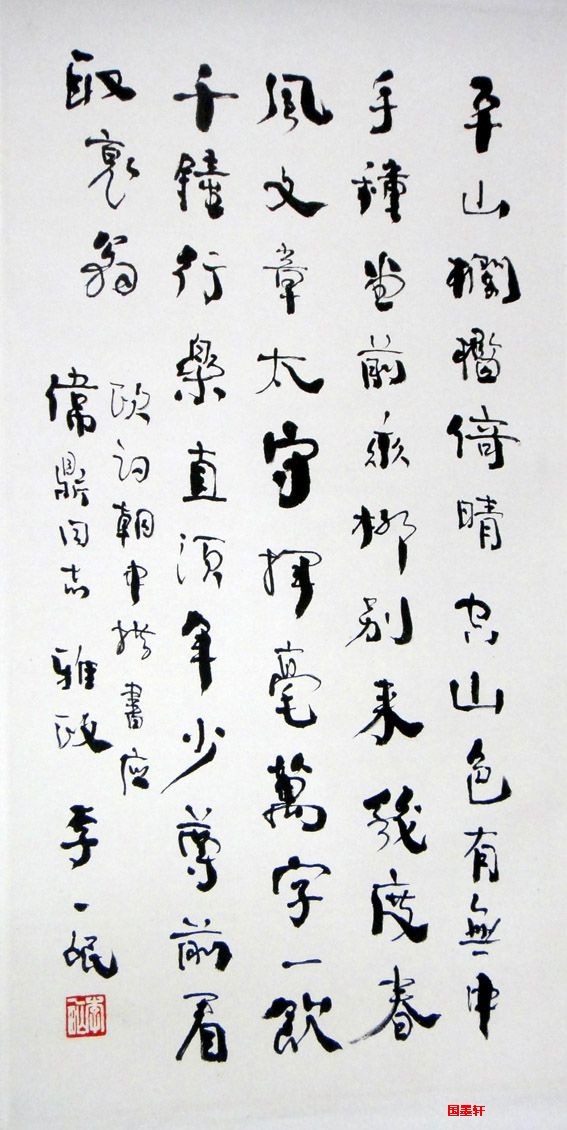 平山欄檻倚晴空山色有無中
手種堂前垂柳別來幾度春
風文章太守揮毫萬字一飲
千鐘行樂直須年少尊前看
取衰翁
歐詞朝中措書應
偉鼎同志雅政 李一氓
国墨轩